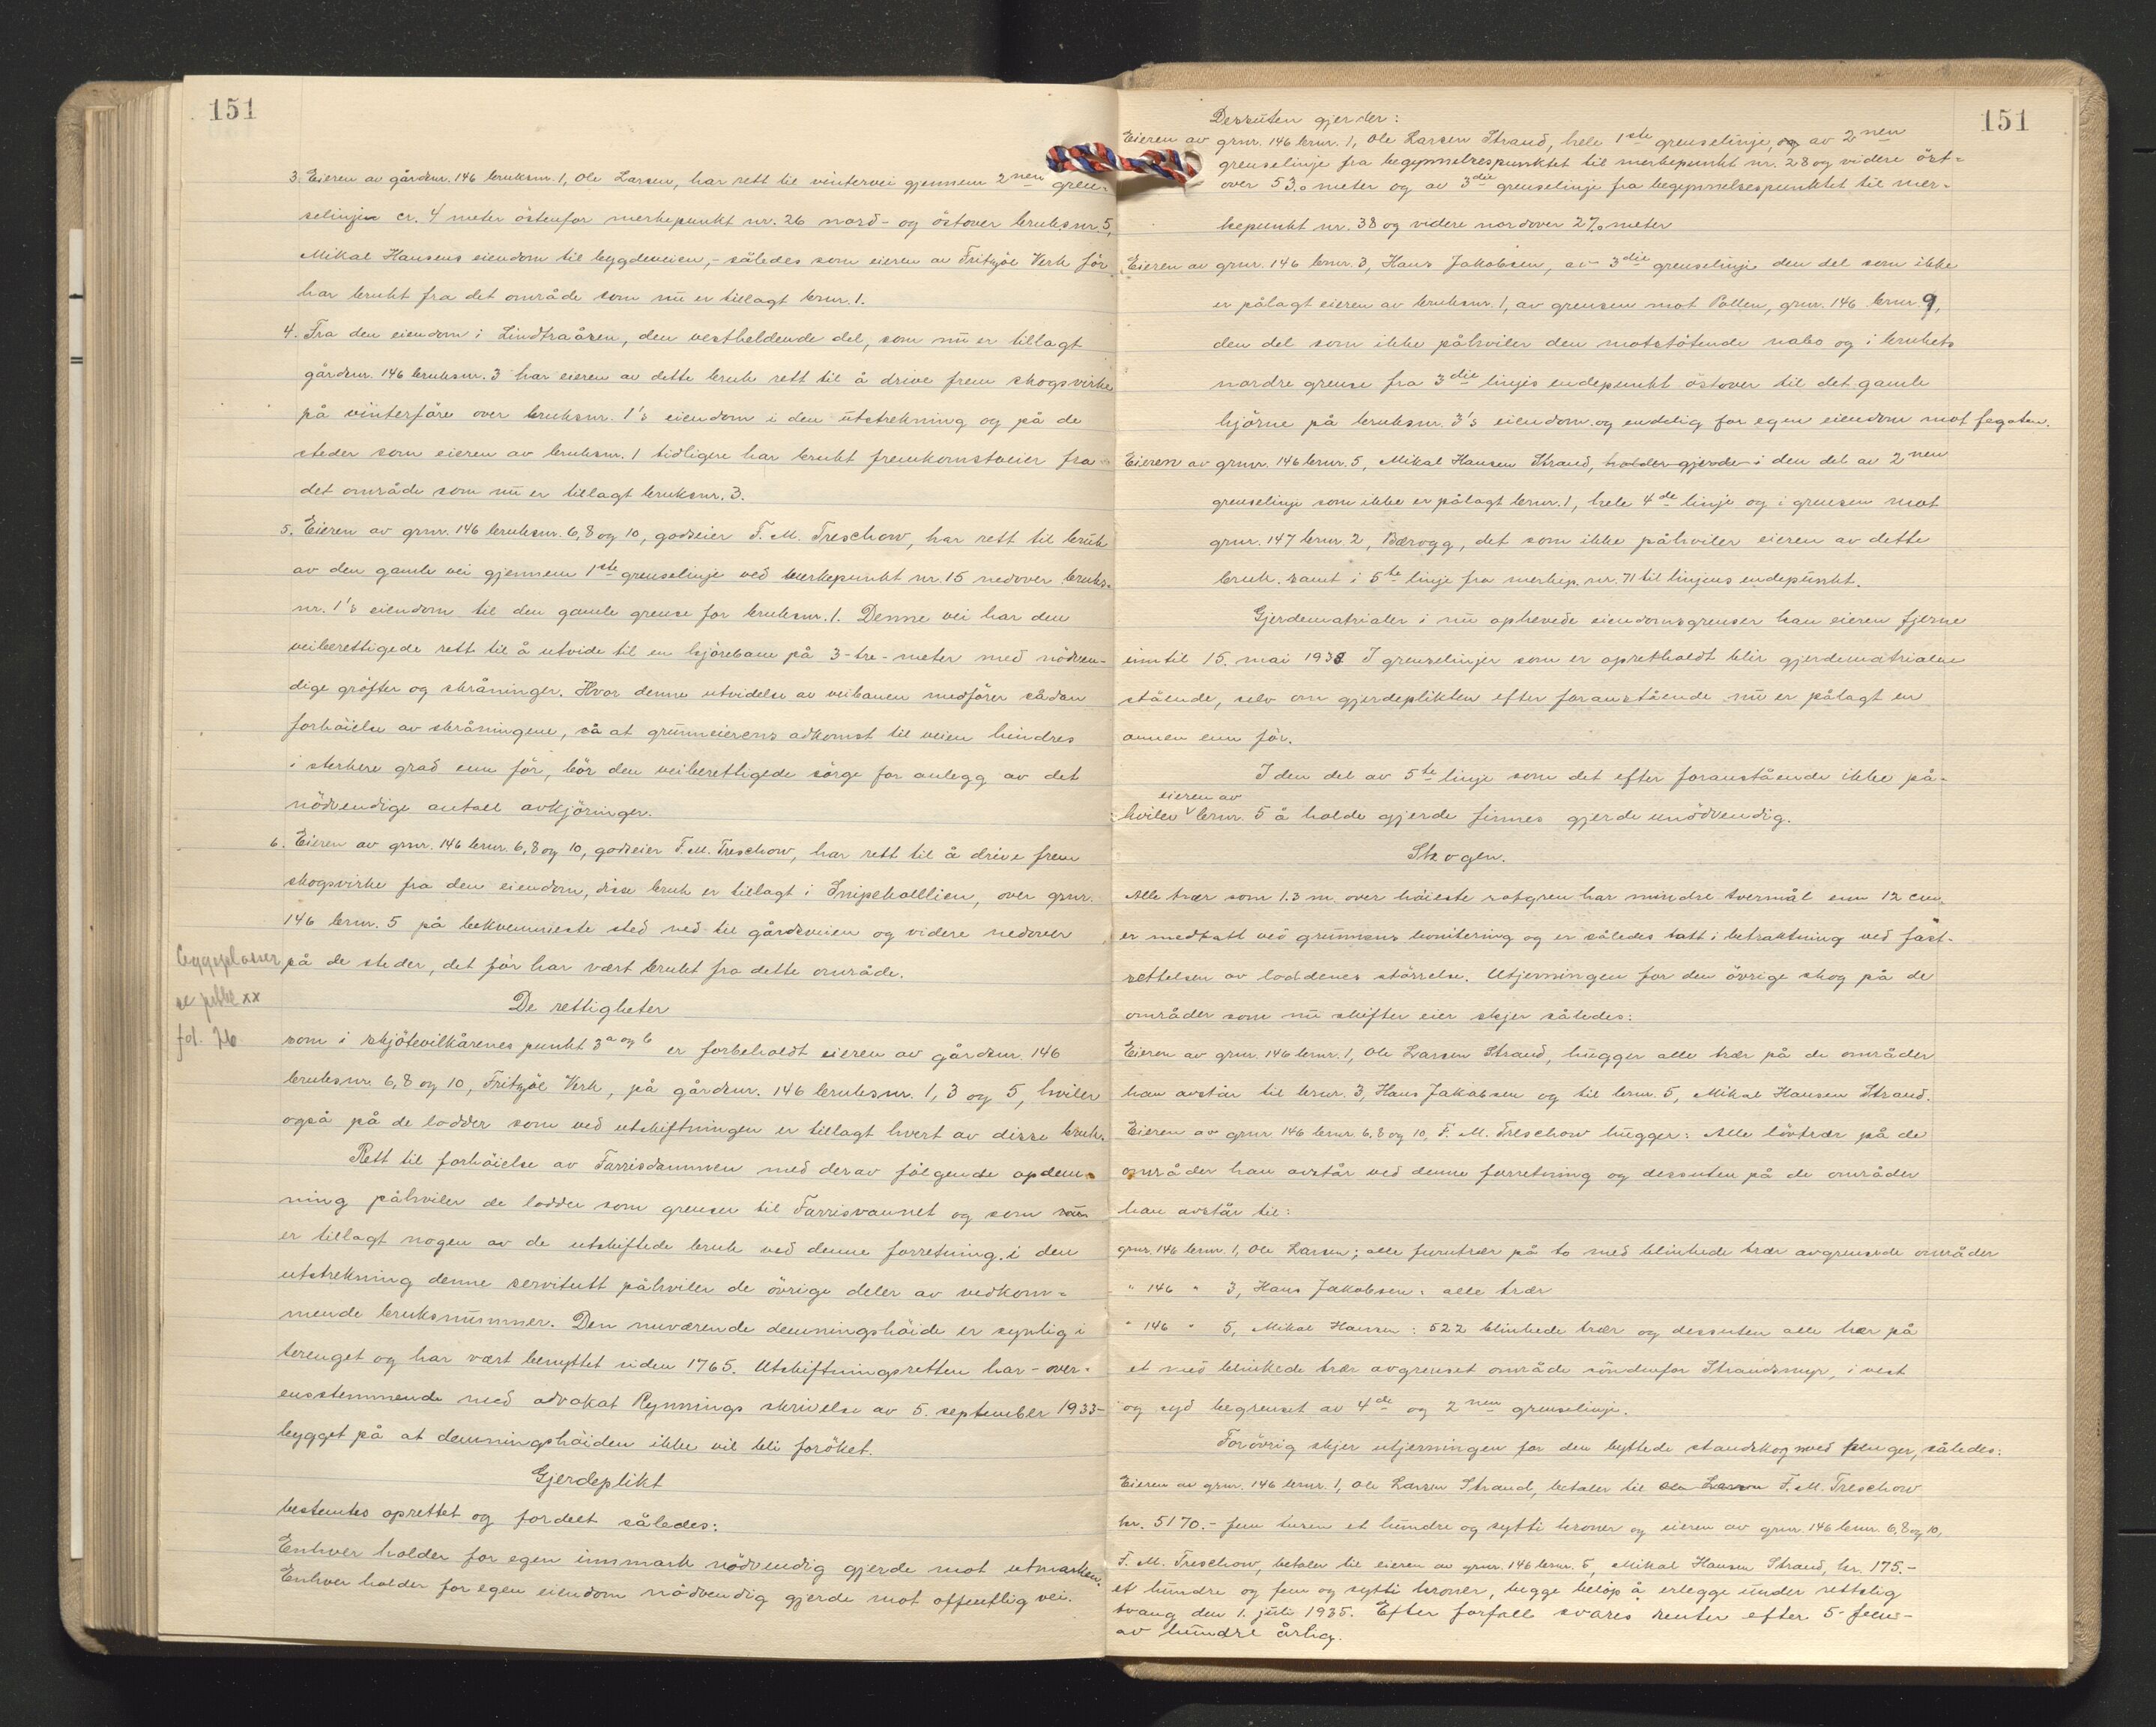 151
3. Eieren av gårdsnr. 146 bruksnr. 1, Ole Larsen, har rett til vintervei gjennem 2nen gren-
selinjen cr. 4 meter östenfor merkepunkt nr. 26 nord- og östover bruksnr. 5,
Mikal Hansens eiendom til bygdeveien, - således som eieren av Fritzöe Verk för
har brukt fra det område som nu er tillagt brnr. 1.
4. Fra den eiendom i Lindtraåsen, den vestheldende del, som nu er tillagt
gårdsnr. 146 bruksnr. 3 har eieren av dette bruk rett til å drive frem skogsvirke
på vinterföre over bruksnr. 1's eiendom i den utstrekning og på de
steder som eieren av bruksnr. 1 tidligere har brukt fremkomstveier fra
det område som nu er tillagt bruksnr. 3.
5. Eieren av grnr. 146 bruksnr. 6, 8 og 10, godseier F. M. Treschow, har rett til bruk
av den gamle vei gjennem 1ste grenselinje ved merkepunkt nr. 15 nedover bruks-
nr. 1's eiendom til den gamle grense for bruksnr. 1. Denne vei har den
veiberettigede rett til å utvide til en kjörebane på 3-tre-meter med nödven-
dige gröfter og skråninger. Hvor denne utvidelse av veibanen medförer sådan
forhöielse av skråningene, så at grunneierens adkomst til veien hindres
i sterkere grad enn för, bör den veiberettigede sörge for anlegg av det
nödvendige antall avkjöringer.
6. Eieren av grnr. 146 brnr. 6, 8 og 10, godseier F. M. Treschow, har rett til å drive frem
skogsvirke fra den eiendom, disse bruk er tillagt i Snipekollien, over grnr.
146 brnr. 5 på bekvemmeste sted ned til gårdsveien og videre nedover
på de steder, det för har vært brukt fra dette område.
Leggeplasser
se xx
fol. 26
De rettigheter
som i skjötevilkårenes punkt 3 a og b er forbeholdt eieren av gårdsnr. 146
bruksnr. 6, 8 og 10, Fritzöe Verk, på gårdsnr. 146 bruksnr. 1, 3 og 5, hviler
også på de lodder som ved utskiftningen er tillagt hvert av disse bruk.
Rett til forhöielse av Farrisdammen med derav fölgende opdem-
ning påhviler de lodder som grenser til Farrisvannet og som nu
er tillagt nogen av de utskiftede bruk ved denne forretning, i den
utstrekning denne servitutt påhviler de övrige deler av vedkom-
mende bruksnummer. Den nuværende demningshöide er synlig i
terenget og har vært benyttet siden 1765. Utskiftningsretten har - over-
ensstemmende med advokat Rynnings skrivelse av 5. september 1933 -
bygget på at demningshöiden ikke vil bli foröket.
Gjerdeplikt
bestemtes oprettet og fordelt således:
Enhver holder for egen innmark nödvendig gjerde mot utmarken.
Enhver holder for egen eiendom nödvendig gjerde mot offentlig vei.
151
Dessuten gjerder:
Eieren av grnr. 146 brnr. 1, Ole Larsen Strand, hele 1ste grenselinje, og av 2nen
grenselinje fra begynnelsespunktet til merkepunkt nr. 28 og videre öst-
over 53.0 meter og av 3die grenselinje fra begynnelsespunktet til mer-
kepunkt nr. 38 og videre nordover 27.0 meter
Eieren av grnr. 146 brnr. 3, Hans Jakobsen, av 3die grenselinje den del som ikke
er pålagt eieren av bruksnr. 1, av grensen mot Pollen, grnr. 146 brnr. 9,
den del som ikke påhviler den motstötende nabo og i brukets
nordre grense fra 3die linjes endepunkt östover til det gamle
hjörne på bruksnr. 3's eiendom og endelig for egen eiendom mot fegaten.
Eieren av grnr. 146 brnr. 5, Mikal Hansen Strand, holder gjerde i den del av 2nen
grenselinje som ikke er pålagt brnr. 1, hele 4de linje og i grensen mot
grnr. 147 brnr. 2, Bærogg, det som ikke påhviler eieren av dette
bruk, samt i 5te linje fra merkep. nr. 71 til linjens endepunkt.
Gjerdematrialer i nu ophevede eiendomsgrenser kan eieren fjerne
inntil 15. mai 1938 I grenselinjer som er oprettholdt blir gjerdematrialene
stående, selv om gjerdeplikten efter foranstående nu er pålagt en
annen enn för.
I den del av 5te linje som det efter foranstående ikke på-
eieren av
hviler brnr. 5 å holde gjerde finnes gjerde unödvendig.
Skogen.
Alle trær som 1.3 m. over höieste rotgren har mindre tvermål enn 12 cm.
er medtatt ved grunnens bonitering og er således tatt i betraktning ved fast-
settelsen av loddenes störrelse. Utjevningen for den övrige skog på de
områder som nu skifter eier skjer således:
Eieren av grnr. 146 brnr. 1, Ole Larsen Strand, hugger alle trær på de områder
han avstår til brnr. 3, Hans Jakobsen og til brnr. 5, Mikal Hansen Strand.
Eieren av grnr 146 brnr. 6, 8 og 10, F. M. Treschow hugger: Alle lövtrær på de
områder han avstår ved denne forretning og dessuten på de områder
han avstår til:
grnr. 146 brnr. 1, Ole Larsen; alle furutrær på to med blinkede trær avgrensede områder
" 146 " 3, Hans Jakobsen: alle trær
" 146 " 5, Mikal Hansen: 522 blinkede trær og dessuten alle trær på
et med blinkede trær avgrenset område söndenfor Strandsmyr, i vest
og syd begrenset av 4de og 2nen grenselinje.
Forövrig skjer utjevningen for den byttede standskog med penger, således:
Eieren av grnr. 146 brnr. 1, Ole Larsen Strand, betaler til Ole Larsen F. M. Treschow
kr. 5170.- fem tusen et hundre og sytti kroner og eieren av grnr. 146 brnr. 6, 8 og 10,
F. M. Treschow, betaler til eieren av grnr. 146 brnr. 5, Mikal Hansen Strand, kr. 175.-
et hundre og fem og sytti kroner, begge belöp å erlegge under rettslig
tvang den 1. juli 1935. Efter forfall svares renter efter 5-fem-
av hundre årlig.